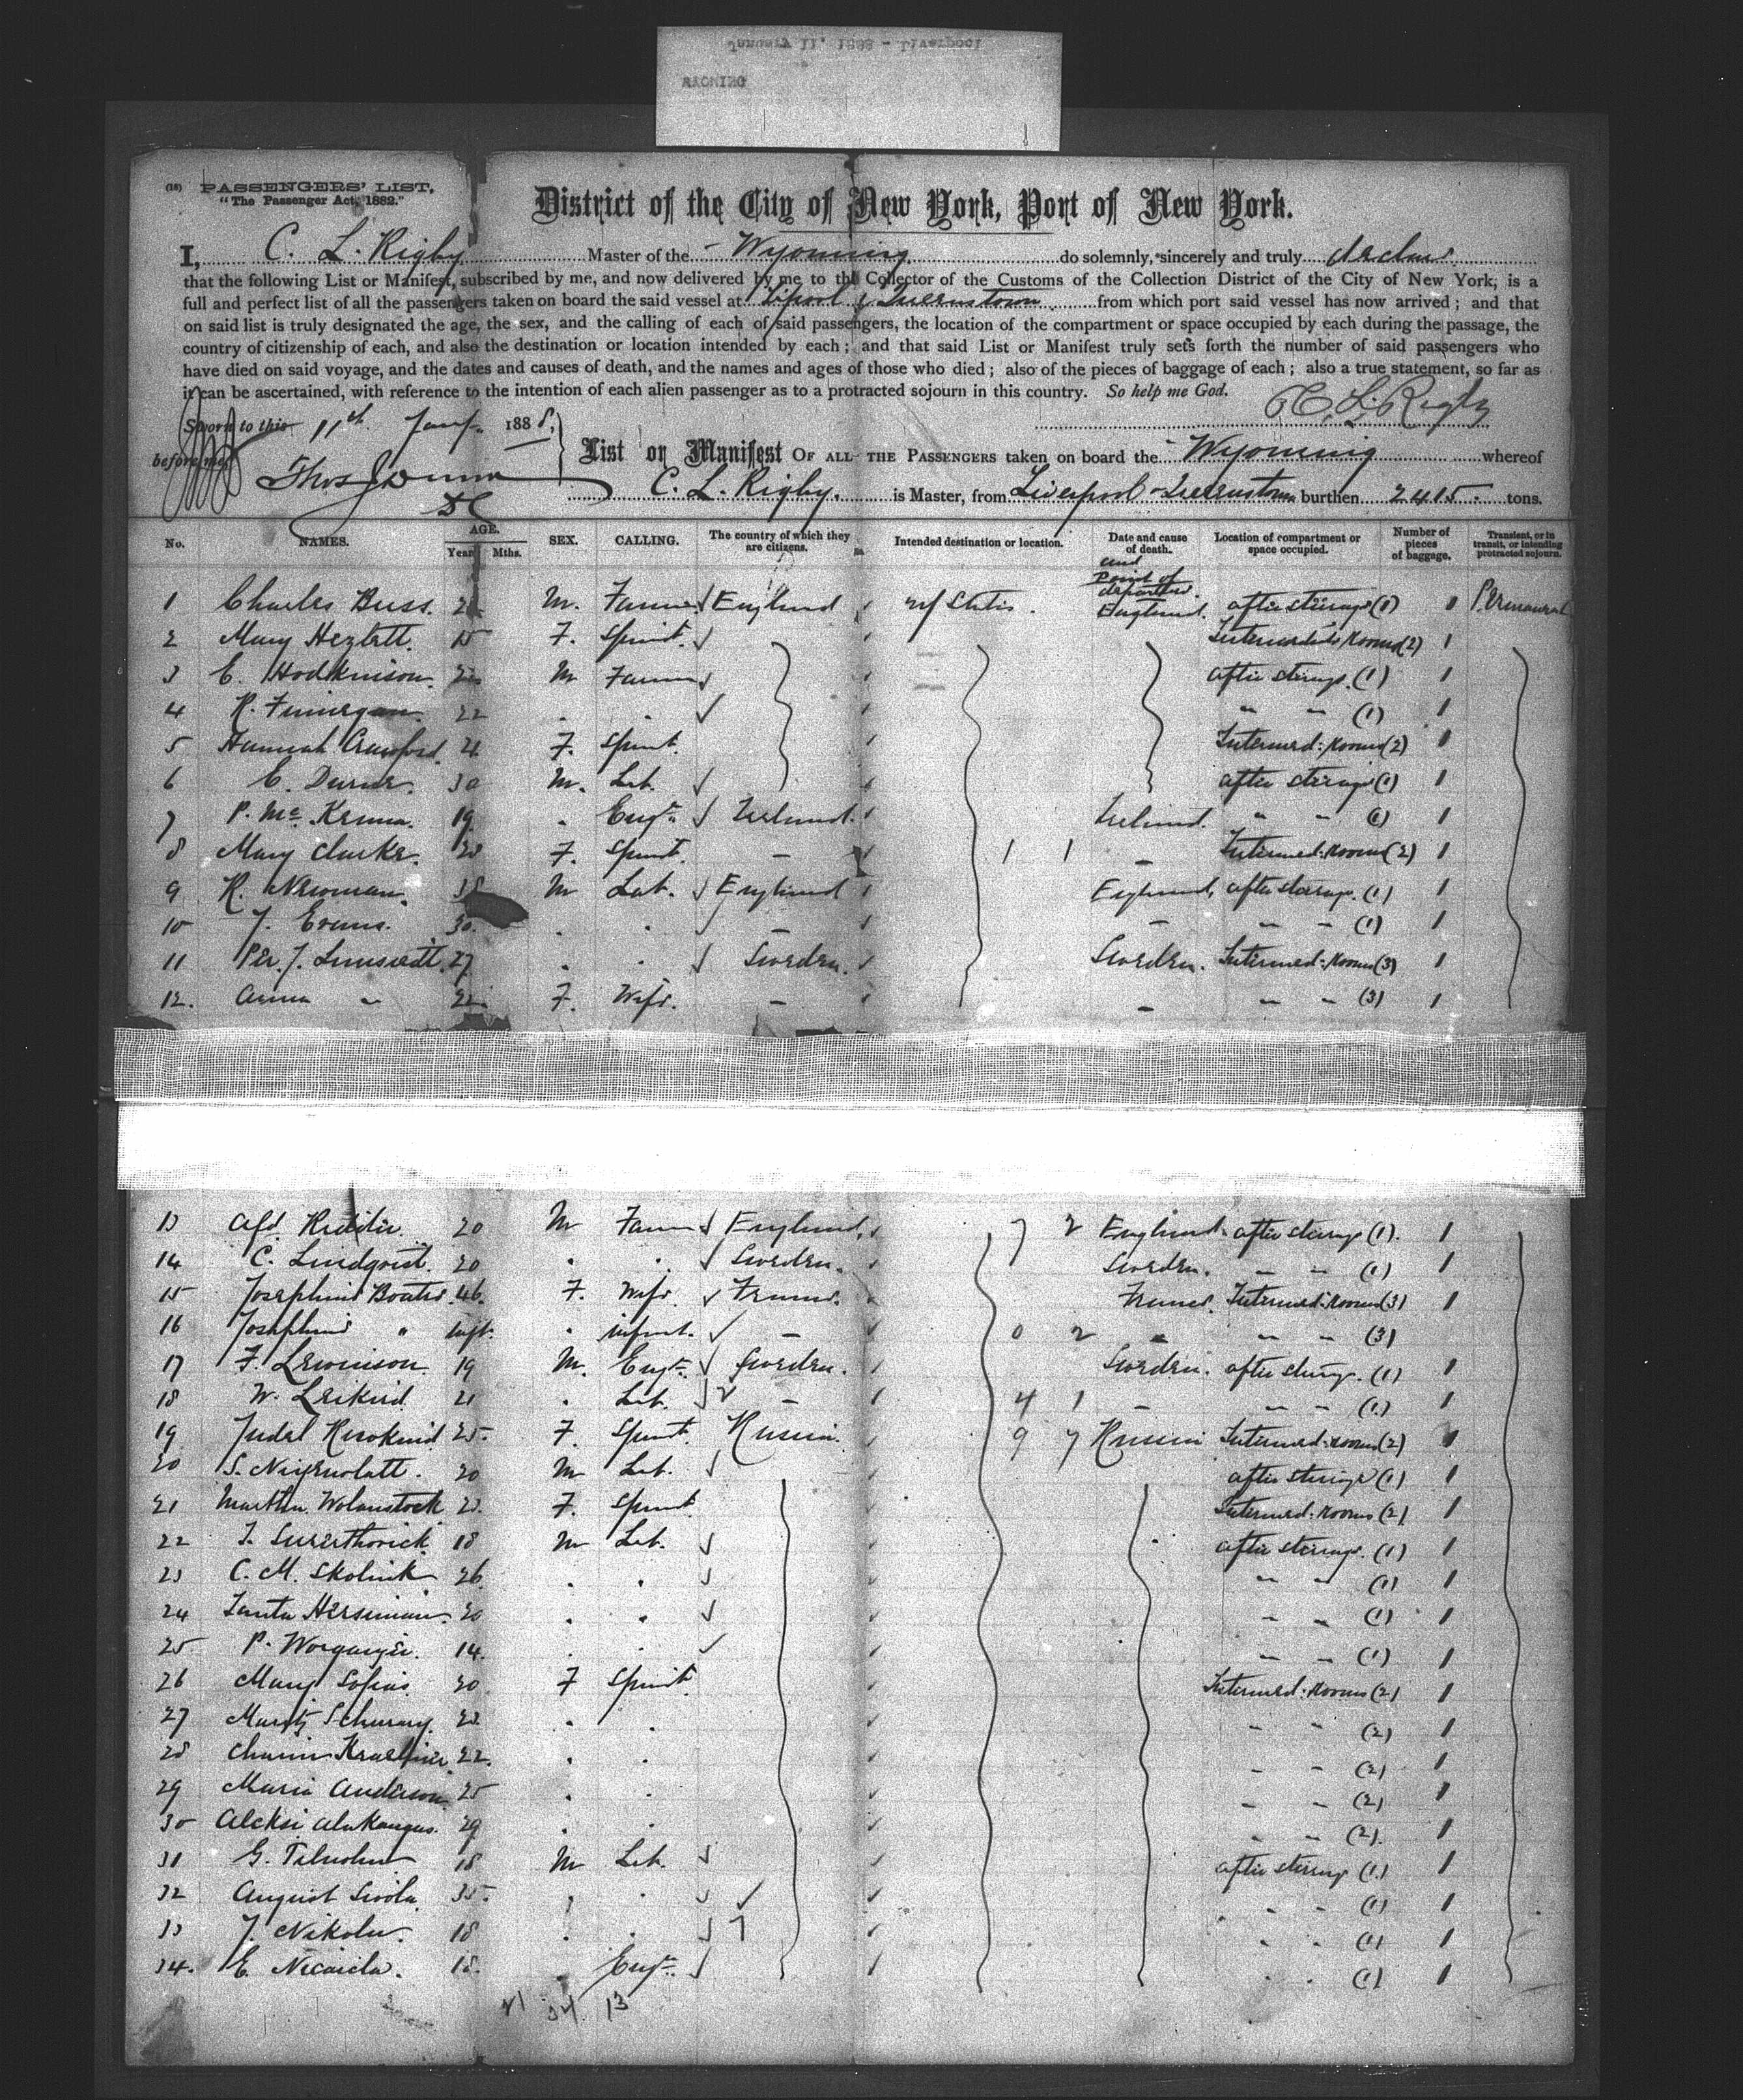 January 11, 1888 - Liverpool
WYOMING
(18) PASSENGERS' LIST.
"The Passenger Act, 1882."
District of the City of New York, Port of New York.
I, C. L. Rigby Master of the Wyoming do solemnly, sincerely and truly declare
that the following List or Manifest, subscribed by me, and now delivered by me to the Collector of the Customs of the Collection District of the City of New York, is a
full and perfect list of all the passengers taken on board the said vessel at L'pool & Queenstown from which port said vessel has now arrived; and that
on said list is truly designated the age, the sex, and the calling of each of said passengers, the location of the compartment or space occupied by each during the passage, the
country of citizenship of each, and also the destination or location intended by each; and that said List or Manifest truly sets forth the number of said passengers who
have died on said voyage, and the dates and causes of death, and the names and ages of those who died; also of the pieces of baggage of each; also a true statement, so far as
it can be ascertained, with reference to the intention of each alien passenger as to a protracted sojourn in this country. So help me God.
C. L. Rigby
Sworn to this 11th Jany 1888,
before me
Thos J Dunn
DC
List or Manifest OF ALL THE PASSENGERS taken on board the Wyoming whereof
C. L. Rigby. is Master, from Liverpool - Queenstown burthen 2415 tons.
No. NAMES. AGE. Years Mths. SEX. CALLING. The country of which they are citizens. Intended destination or location. Date and cause of death. and Point of departure. Location of compartment or space occupied. Number of pieces of baggage. Transient, or in transit, or intending protracted sojourn.
1 Charles Buss. M. Farmer England U States. England. after steerage (1) 1 Permanent
2 Mary Hezlett. 15 F. Spinst. Intermediate Rooms (2) 1
3 E. Hodkinson. M Farmer after steerage. (1) 1
4 R. Finnegan. 22 . . " " (1) 1
5 Hannah Crawford. 21 F. Spinst. Intermed: Rooms (2) 1
6 E. Durner. 30 M. Lab. after steerage (1) 1
7 P. McKenna. 19. . Engr. Ireland. Ireland. " " (1) 1
8 Mary Clarke. 20 F. Spinst. - 1 1 - Intermed: Rooms (2) 1
9 R. Newman. 38 M Lab. England England, after steerage. (1) 1
10 J. Evans. 30. . . - - " " (1) 1
11 Per. J. 27 . . Sweden. Sweden. Intermed: Rooms (3) 1
12. Anna " 22. F. Wife. - - " " (3) 1
13 Alfd. 20 M Farmer England. 7 2 England. after steerage (1). 1
14 C. Lindqvist. 20 . . Sweden. Sweden. " " (1) 1
15 Josephine 46. F. Wife. France. France. Intermed: Rooms (3) 1
16 Josephine " Inft. . infant. - 0 2 " " " (3)
17 F. Lewinson. 19 M. Engr. Sweden. Sweden. after steerage. (1) 1
18 W. Leikind. 21 . Lab. - 4 1 - " " (1) 1
19 Judel 25. F. Spinst. Russia. 9 7 Russia Intermed: rooms (2) 1
20 S. 20 M Lab. after steerage (1) 1
21 Martha Wolanstock 22. F. Spinst Intermed: Rooms (2) 1
22 18 M Lab. after steerage. (1) 1
23 C. M. Skolnik 26. . . " " (1) 1
24 20 . . " " (1) 1
25 P. 14. . . " " (1) 1
26 Mary Sofias. 20 F Spinst. Intermed: Rooms (2) 1
27 22. . . " " (2) 1
28 22. . . " " (2) 1
29 Maria Anderson 25 . . " " (2) 1
30 Aleksi Alakangas. 29 . . " " (2). 1
31 G. 18 M Lab. after steerage (1) 1
32 August 35. . . " " (1) 1
33 J. Nikola. 18 . . " " (1) 1
34. E. 18. . Engr. " " (1) 1
21 34 13